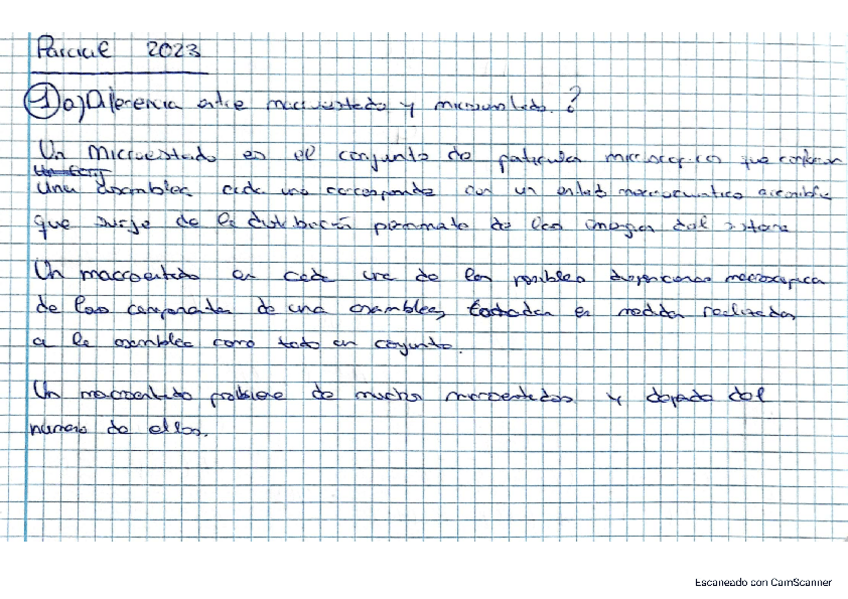 Parcial 2023
1 a) Diferencia entre macroestado y microestado.?
Un Microestado es el conjunto de particulas microscópicas que conforman
una asamblea cada uno corresponde con un estado accesible
que surje de la distribución de las energias del sistema
Un macroestado es cada una de las posibles macroscópica
de los de una asamblea, en medidas realizadas
a la asamblea como todo en conjunto.
Un macroestado proviene de muchos microestados y depende del
número de ellos.
Escaneado con CamScanner